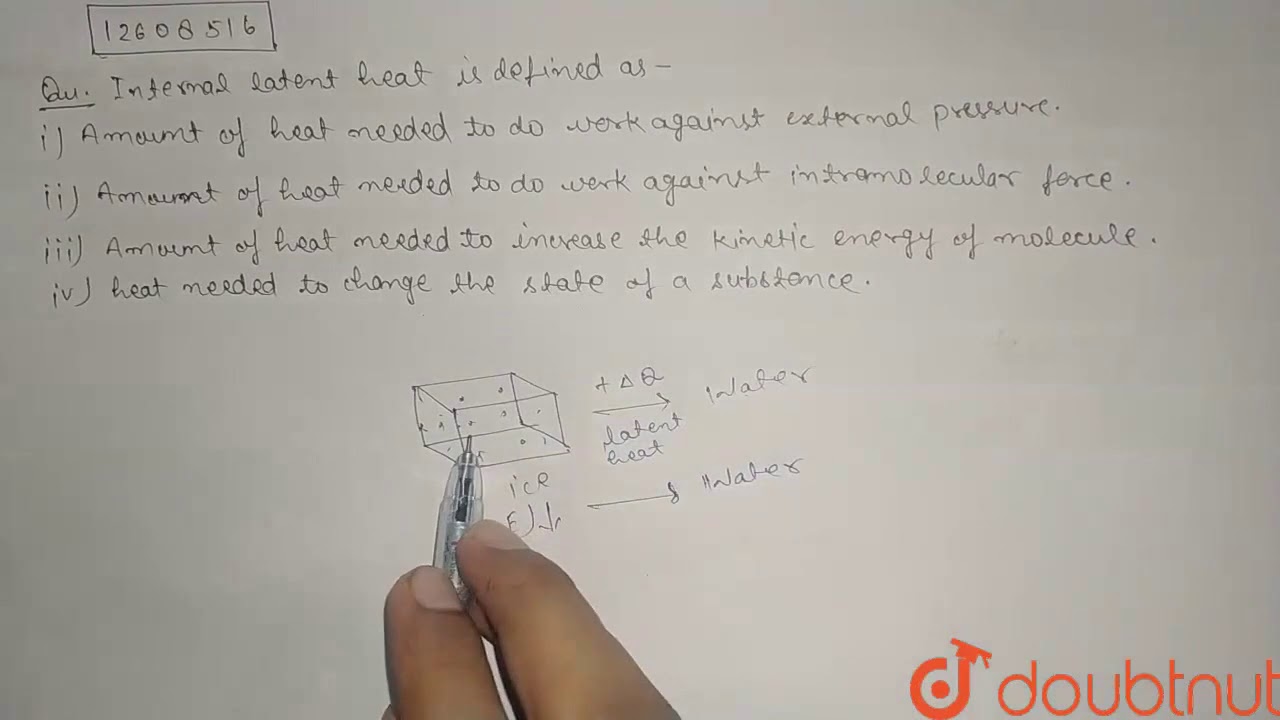 12608516
Qu. Internal latent heat is defined as-
i) Amount of heat needed to do work against external pressure.
ii) Amount of heat needed to do work against intramolecular force.
iii) Amount of heat needed to increase the kinetic energy of molecule.
iv) heat needed to change the state of a substance.
+ΔQ
Water
latent
heat
ice
Water
doubtnut